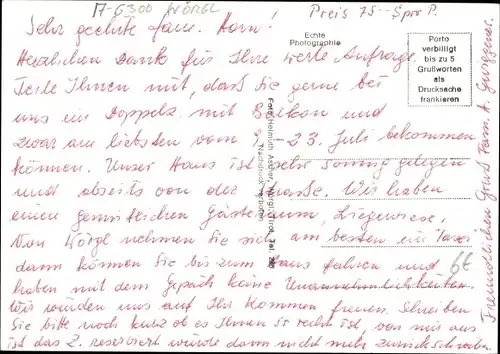 A-6300 WÖRGL
Preis 75.- S pro P.
Sehr geehrte Fam. Horn!
Herzlichen Dank für Ihre werte Anfrage.
Teile Ihnen mit, dass Sie gerne bei
uns ein Doppelz. mit Balkon und
zwar am liebsten vom - 23. Juli bekommen
können. Unser Haus ist sehr sonnig gelegen
und abseits von der Straße. Wir haben
einen gemütlichen Gästeraum, Liegewiese,
Von Wörgl nehmen Sie sich am besten ein Taxi
dann können Sie bis zum Haus fahren und
haben mit dem Gepäck keine Unannehmlichkeiten.
Wir würden uns auf Ihr Kommen freuen. Schreiben
Sie bitte noch kurz ob es Ihnen so recht ist, von mir aus
ist das Z. reserviert würde dann nicht mehr zurückschreiben.
Freundlichen Gruss Fam. A.
Echte
Photographie
Porto
verbilligt
bis zu 5
Grußworten
als
Drucksache
frankieren
Foto Helmuth Wörgl, Tirol, Tel.
Nachdruck verboten
6t